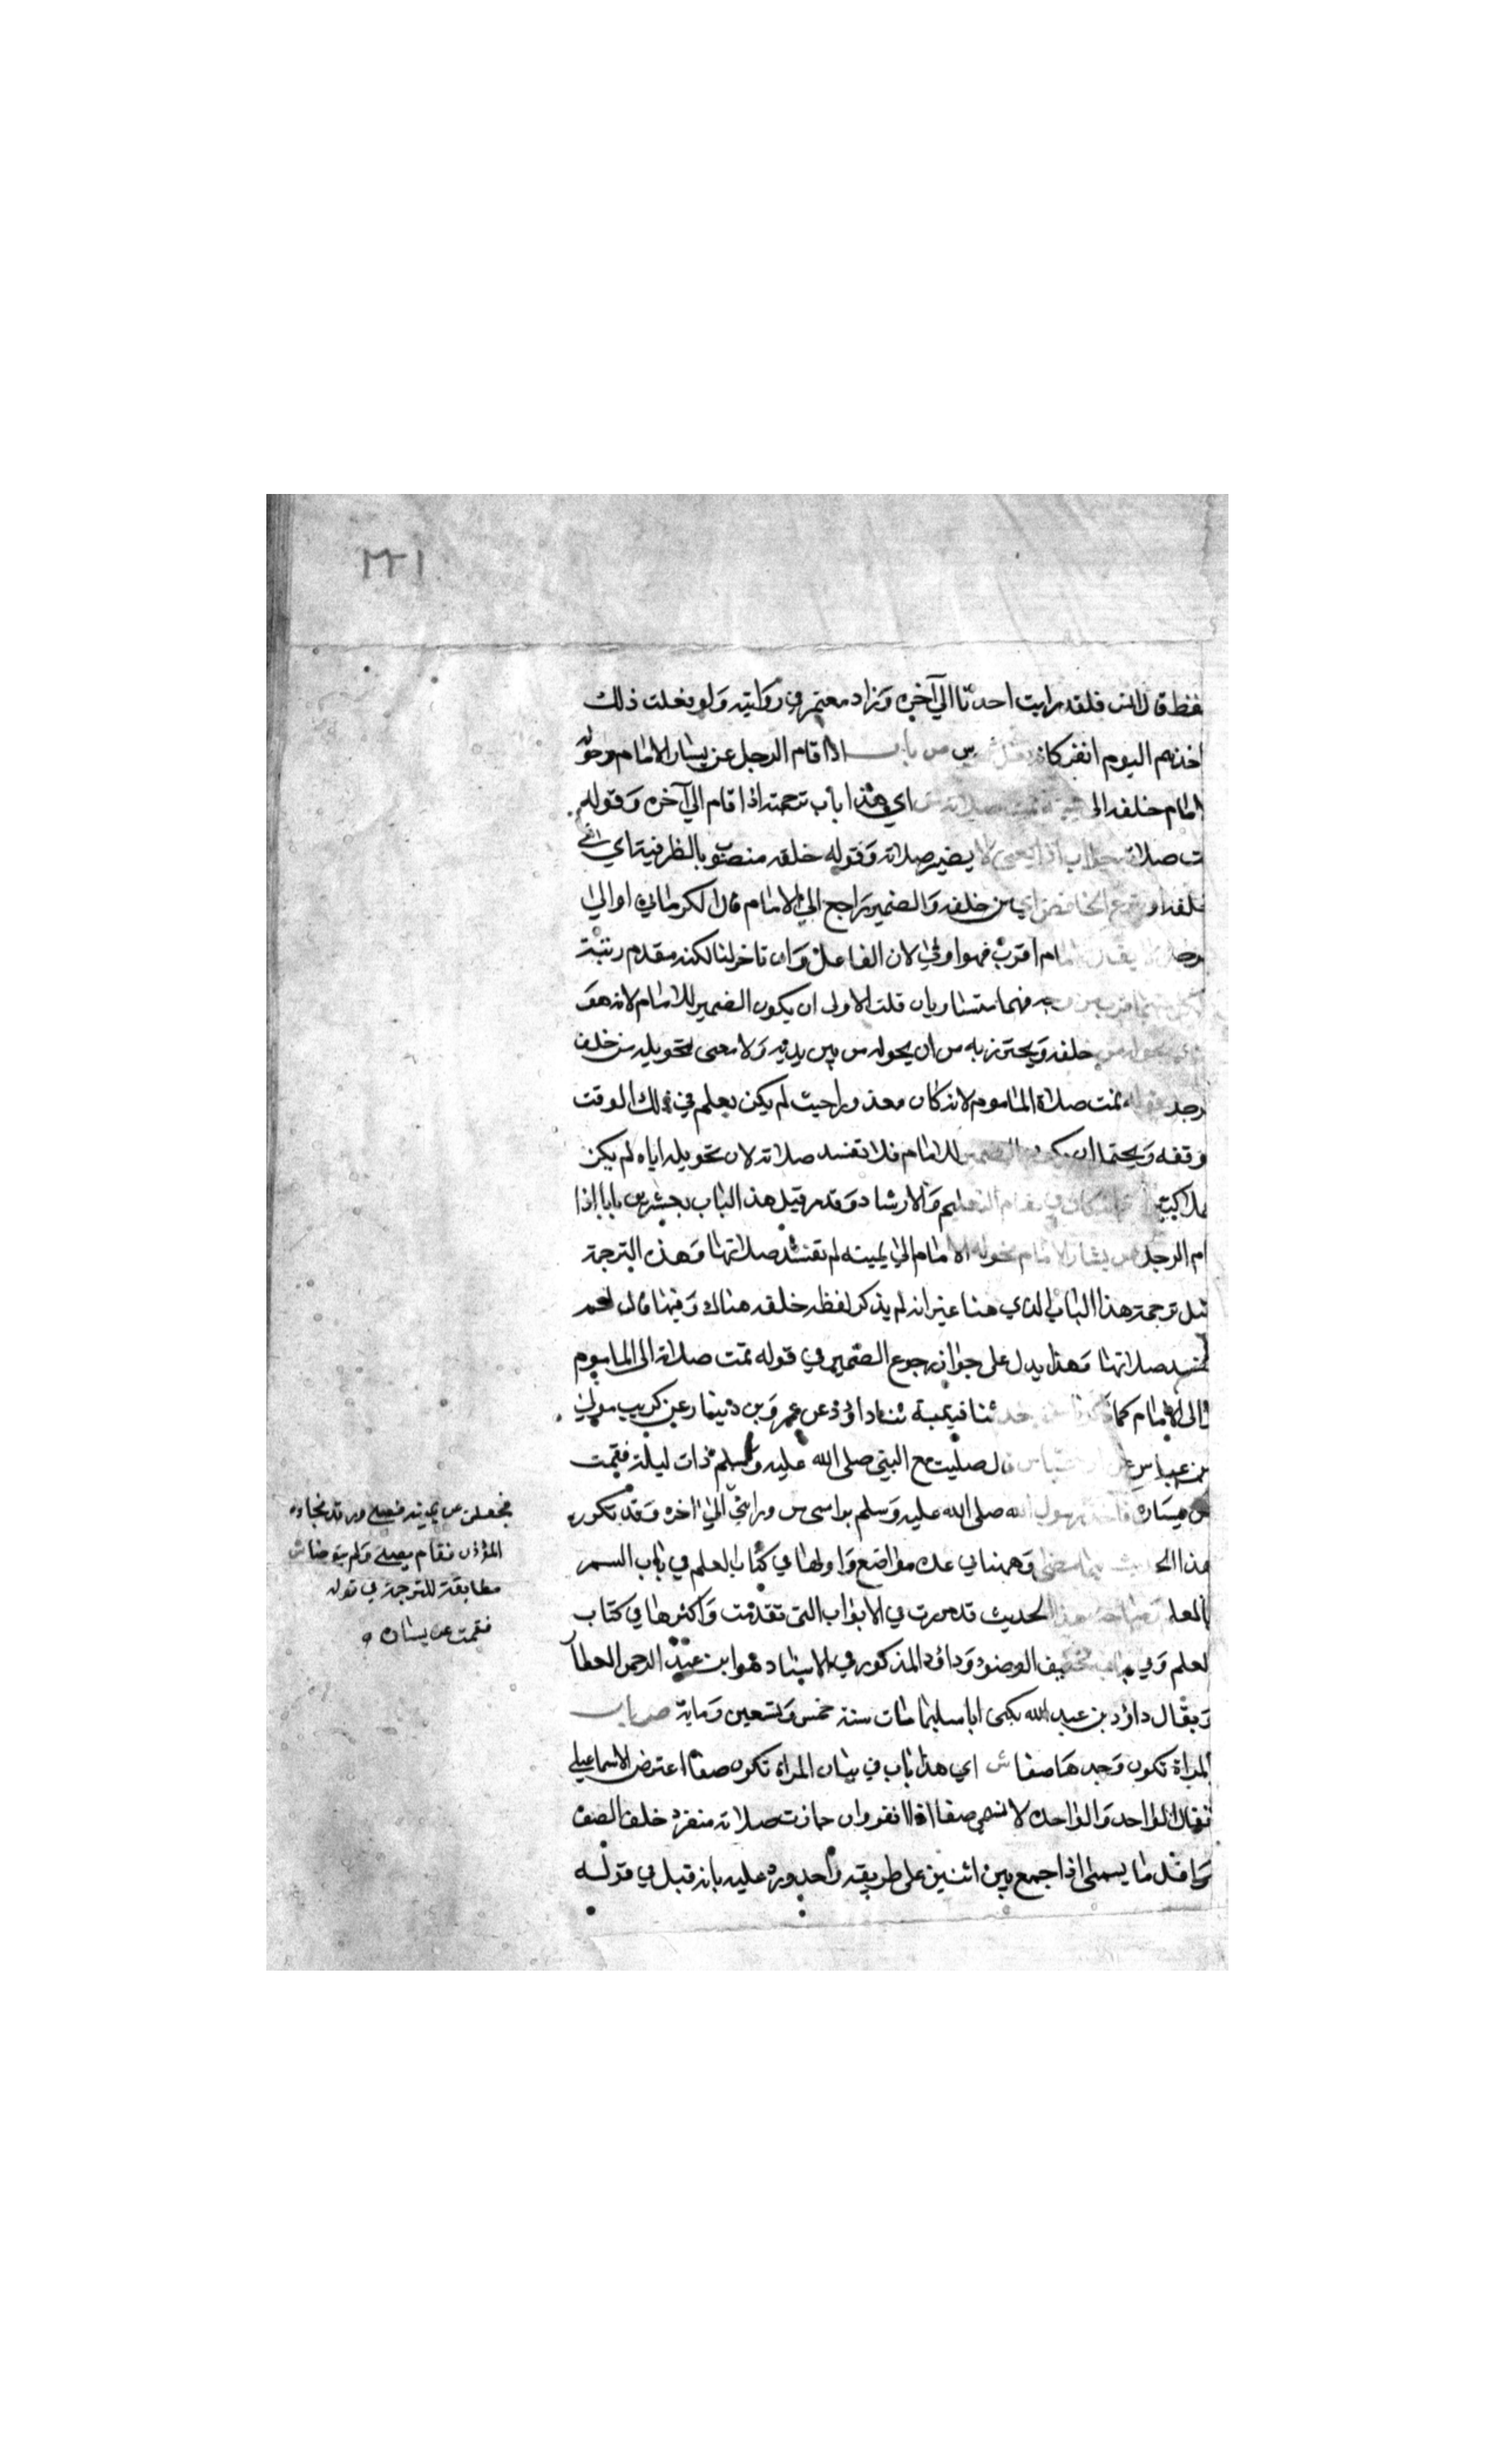 ٢٢١
فظ قال انس فلقد رايت احدنا الي آخره وزاد معتمر في روايته ولو فعلت ذلك
احدهم اليوم لنفر كانه بغل ص باب اذا قام الرجل عن يسار الامام وحوله
امام خلفه الى تمت صلاته ش اي هذا باب ترجمته اذا قام الي آخره وقوله
ت صلاته جواب اذا يعني لا يضير صلاته وقوله خلفه منصوب بالظرفية اي في
خلفه او بنزع الخافض اي من خلفه والضمير راجع الي الامام قال الكرماني او الي
رجل لان الامام اقرب فهو اولي لان الفاعل وان تاخر لفظا لكنه مقدم رتبة
فهما متساويان قلت الاولى ان يكون الضمير للامام لانه هو
الذي يحوله من خلفه ويحترز به من ان يحوله من بين يديه ولا معنى لتحويله من خلف
رجل قوله تمت صلاة الماموم لانه كان معذورا حيث لم يكن يعلم في ذلك الوقت
وقفه ويحتمل ان يكون الضمير للامام فلا تفسد صلاته لان تحويله اياه لم يكن
في مقام التعليم والارشاد وقد مر قبل هذا الباب بعشرين بابا اذا
ام الرجل عن يسار الامام فحوله الامام الي يمينه لم تفسد صلاتهما وهذه الترجمة
مثل ترجمة هذا الباب الذي هنا غير انه لم يذكر لفظ خلفه هناك وفيها قال لم
تفسد صلاتهما وهذا يدل على جواز رجوع الضمير في قوله تمت صلاته الى الماموم
والى الامام كما ذكرنا ص حدثنا قتيبة ثنا داود عن عمرو بن دينار عن كريب مولي
بن عباس عن ابن عباس قال صليت مع النبي صلى الله عليه وسلم ذات ليلة فقمت
عن يساره فاخذ رسول الله صلى الله عليه وسلم براسي من ورائي الي اخره وقد تكرر
هذا الحديث فيما مضى وههنا في عدة مواضع واولها في كتاب العلم في باب السمر
بالعلم هذا الحديث قد مرت في الابواب التي تقدمت واكثرها في كتاب
لعلم وفي باب تخفيف الوضوء وداود المذكور في الاسناد هو ابن عبد الرحمن العطار
ويقال داود بن عبد الله يكنى ابا سليمان مات سنة خمس وتسعين وماية ص باب
المراة تكون وحدها صفا ش اي هذا باب في بيان المراة تكون صفا اعترض الاسماعيلي
فقال الواحد والواحدة لا تسمى صفا اذا انفرد وان جازت صلاته منفردا خلف الصف
واقل ما يسمى اذا جمع بين اثنين على طريقة واحدة ورد عليه بانه قيل في قوله
فجعلني عن يمينه فصلى ورقد فجاءه
المؤذن فقام يصلي ولم يتوضا ش
مطابقته للترجمة في قوله
فقمت عن يساره